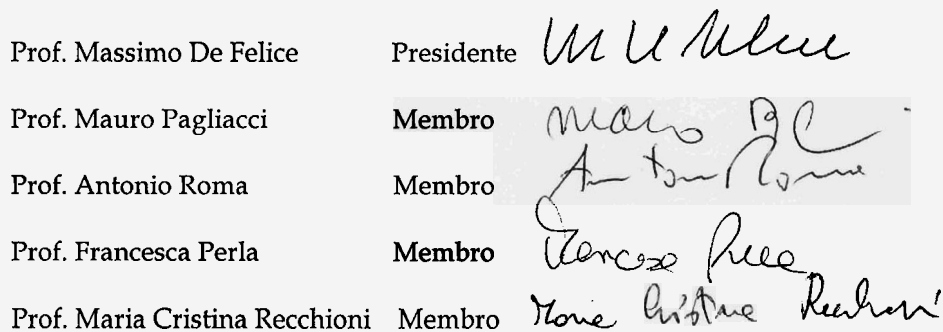 Prof. Massimo De Felice Presidente
Prof. Mauro Pagliacci Membro
Prof. Antonio Roma Membro Antonio Roma
Prof. Francesca Perla Membro Francesca Perla
Prof. Maria Cristina Recchioni Membro Maria Cristina Recchioni